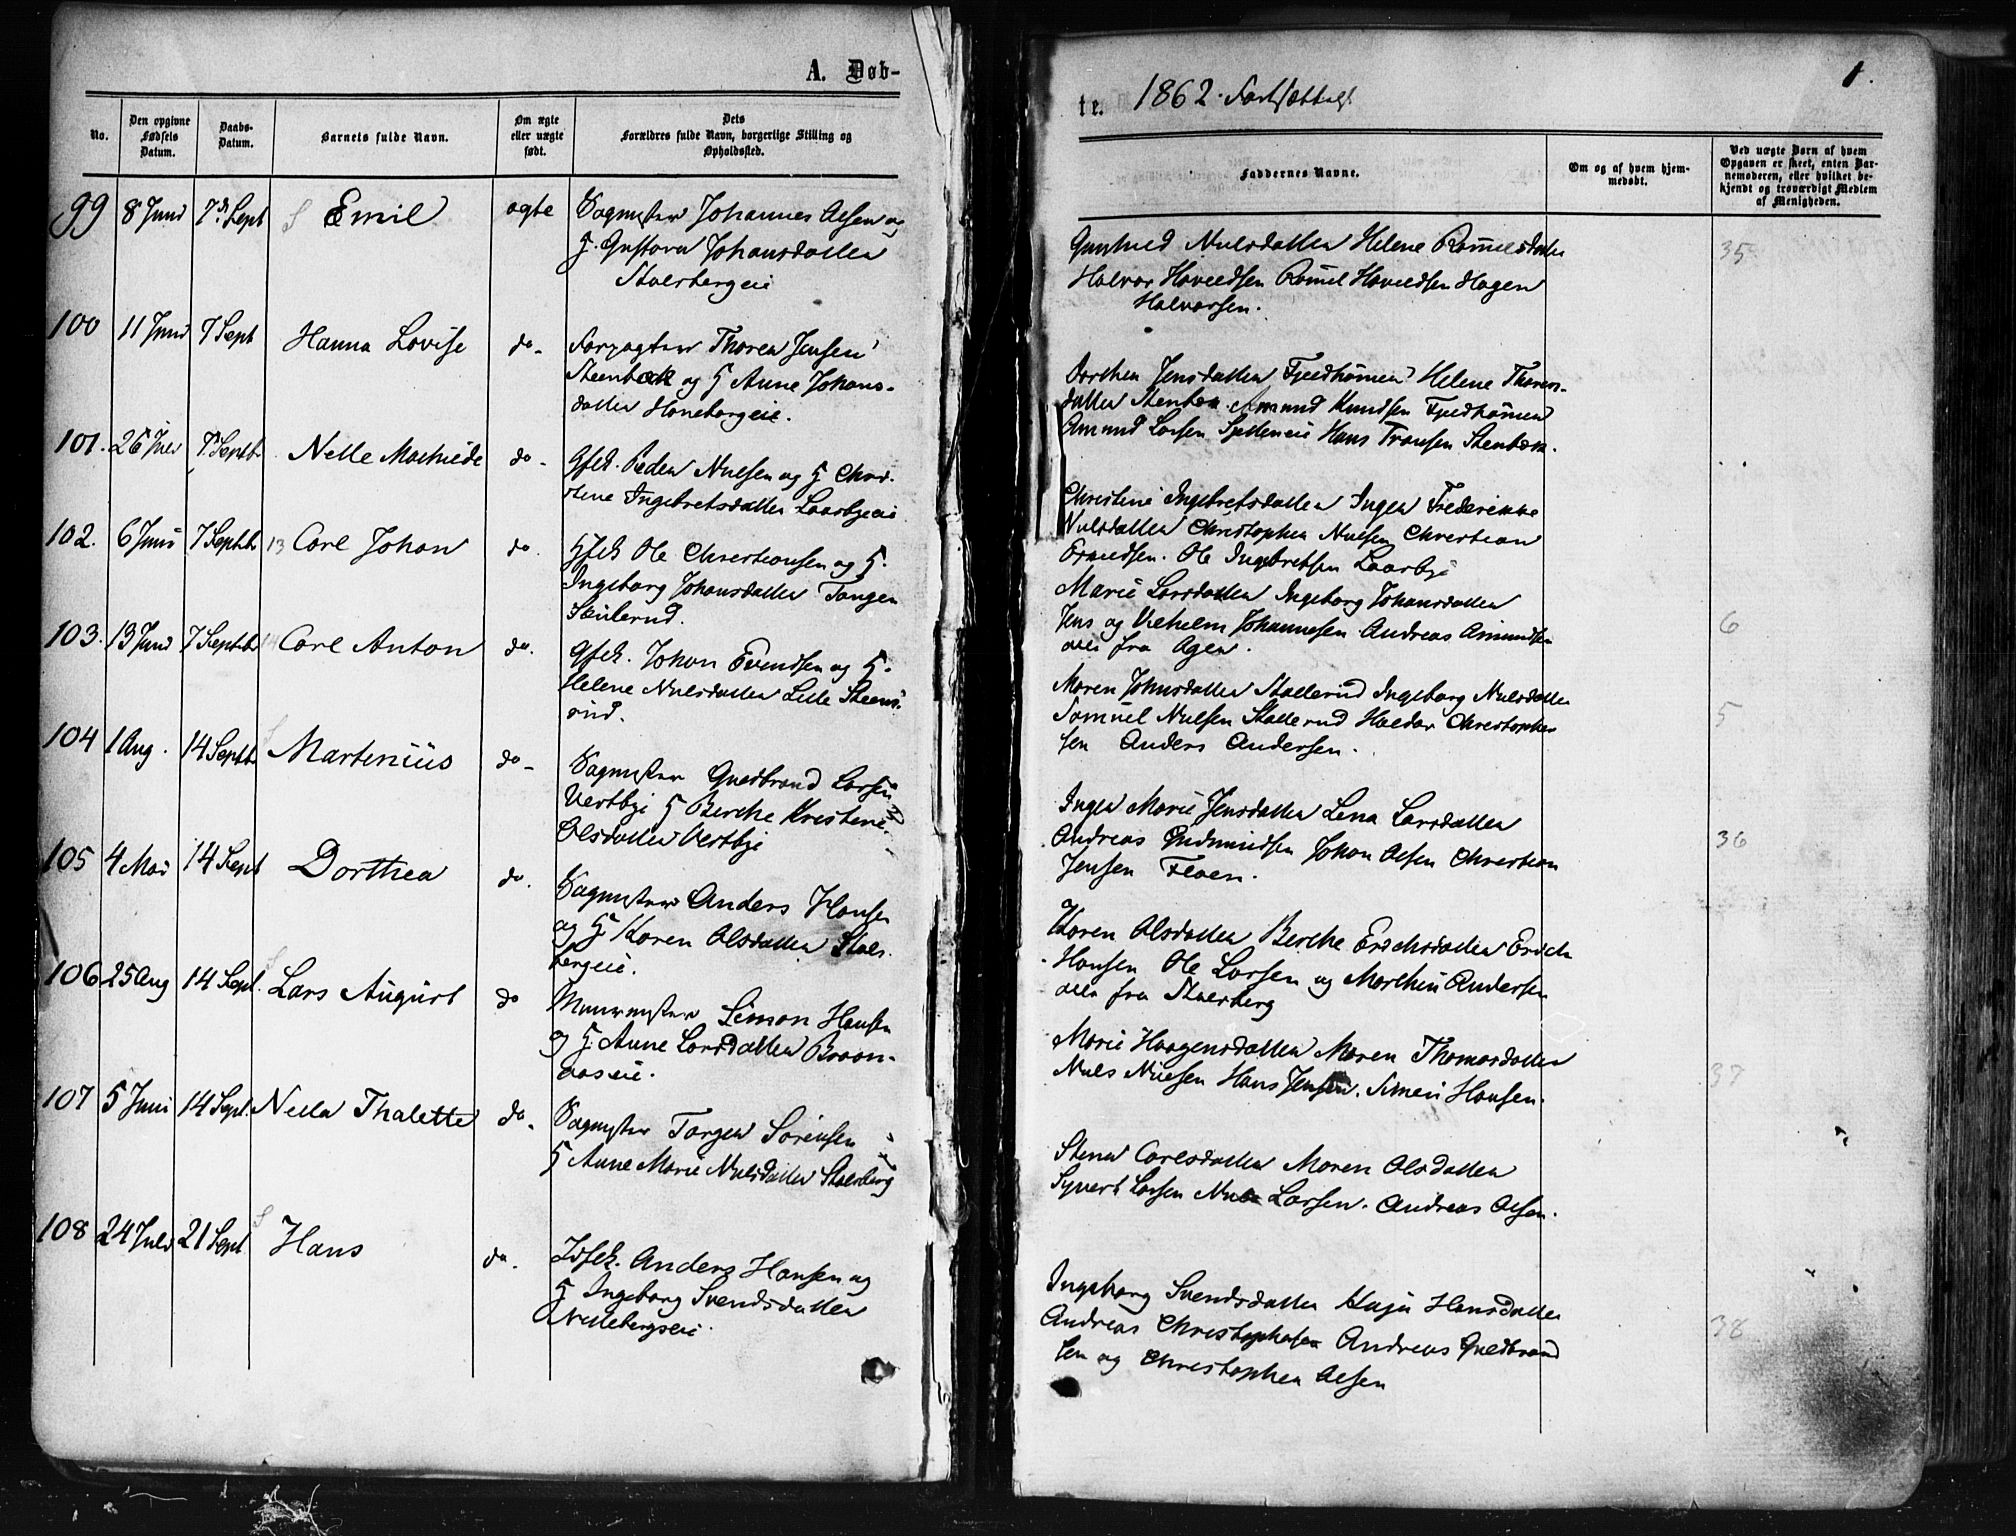 A. Døb-
No.
Den opgivne Fødsels Datum.
Daabs-Datum.
Barnets fulde Navn.
Om ægte eller uægte født.
Dets Forældres fulde Navn, borgerlige Stilling og Opholdssted.
99 8 Juni 7d Sept Emil ægte Johannes Olsen og
G. Gustava Johansdatter
100 11 Juni 7 Sept Hanna Lovise do- Forpagter Thoren Jensen
Steenbæk og G Anne Johans-
datter Haneborgeie.
101. 26 Juli 7 Septb. Nelle Mathilde do- Gfek. Peder Nielsen og G Chris-
tene Ingebretsdatter Laarbyeie
102. 6 Juni 7 Septb 13 Carl Johan do. Gfek Ole Christiansen og G.
Ingeborg Johansdatter Tangen
Skulerud.
103. 13 Juni 7 Septb 14 Carl Anton do. Gfek. Johan Evendsen og G.
Helene Nielsdatter Lille Steens-
rud.
104 1 Aug. 14 Septb Martinius do- Guldbrand Larsen
Vestbye G Berthe Kristene
Olsdatter Vestbye
105 4 Mai 14 Sept Dorthea do. Anders Hansen
og G. Karen Olsdatter Stals-
bergeie.
106 25 Aug 14 Sept. Lars August do Muurmester Simon Hansen
og G. Anne Larsdatter Braan-
aaseie.
107 5 Juni 14 Sept. Nella Thalette do. Torger Sørensen
G Anne Marie Nielsdatter Stalsberg
108 24 Juli 21 Sept Hans do. Idfek. Anders Hansen og
G Ingeborg Svendsdatter
te. 1862. Fortsættelse
1.
Faddernes Navne.
Om og af hvem hjemmedøbt.
Ved uægte Børn af hvem Opgaven er skeet, enten Barnemoderen, eller hvilket bekjendt og troværdigt Medlem af Menigheden.
Gunhild Nielsdatter Helene Romelsdatter 35
Halvor Haveldsen Romel Haveldsen Hagen
Halvorsen.
Dorthea Jensdatter Fjeldhamer Helene Thoren-
datter Stenbæk Amund Knudsen Fjeldhamer
Amund Larsen Hans Fransen Stenbæk.
Christine Ingebretsdatter Inger Frederikke
Nielsdatter Christopher Nielsen Christian
Ole Ingebretsen Laarbye
Marie Larsdatter Ingeborg Johansdatter
Jens og Vilhelm Johannesen Andreas Amundsen 6
alle fra Agen.
Maren Johnsdatter Stallerud Ingeborg Nielsdatter
Samuel Nielsen Stallerud Haldor Christopher- 5
sen Anders Andersen.
Inger Marie Jensdatter Lena Larsdatter
Andreas Gudmundsen Johan Olsen Christian 36
Jensen Flaen.
Karen Olsdatter Berthe Erichsdatter Erich
Hansen Ole Larsen og Marthin Andersen
alle fra Stalsberg
Marie Haagensdatter Maren Thomasdatter
Niels Nielsen Hans Jensen. Simen Hansen. 37
Stena Carlsdatter Maren Olsdatter
Syvert Larsen Niels Larsen. Andreas Olsen.
Ingeborg Svendsdatter Kaja Hansdatter
Andreas Christophersen Andreas Guldbrand 38
sen og Christopher Olsen